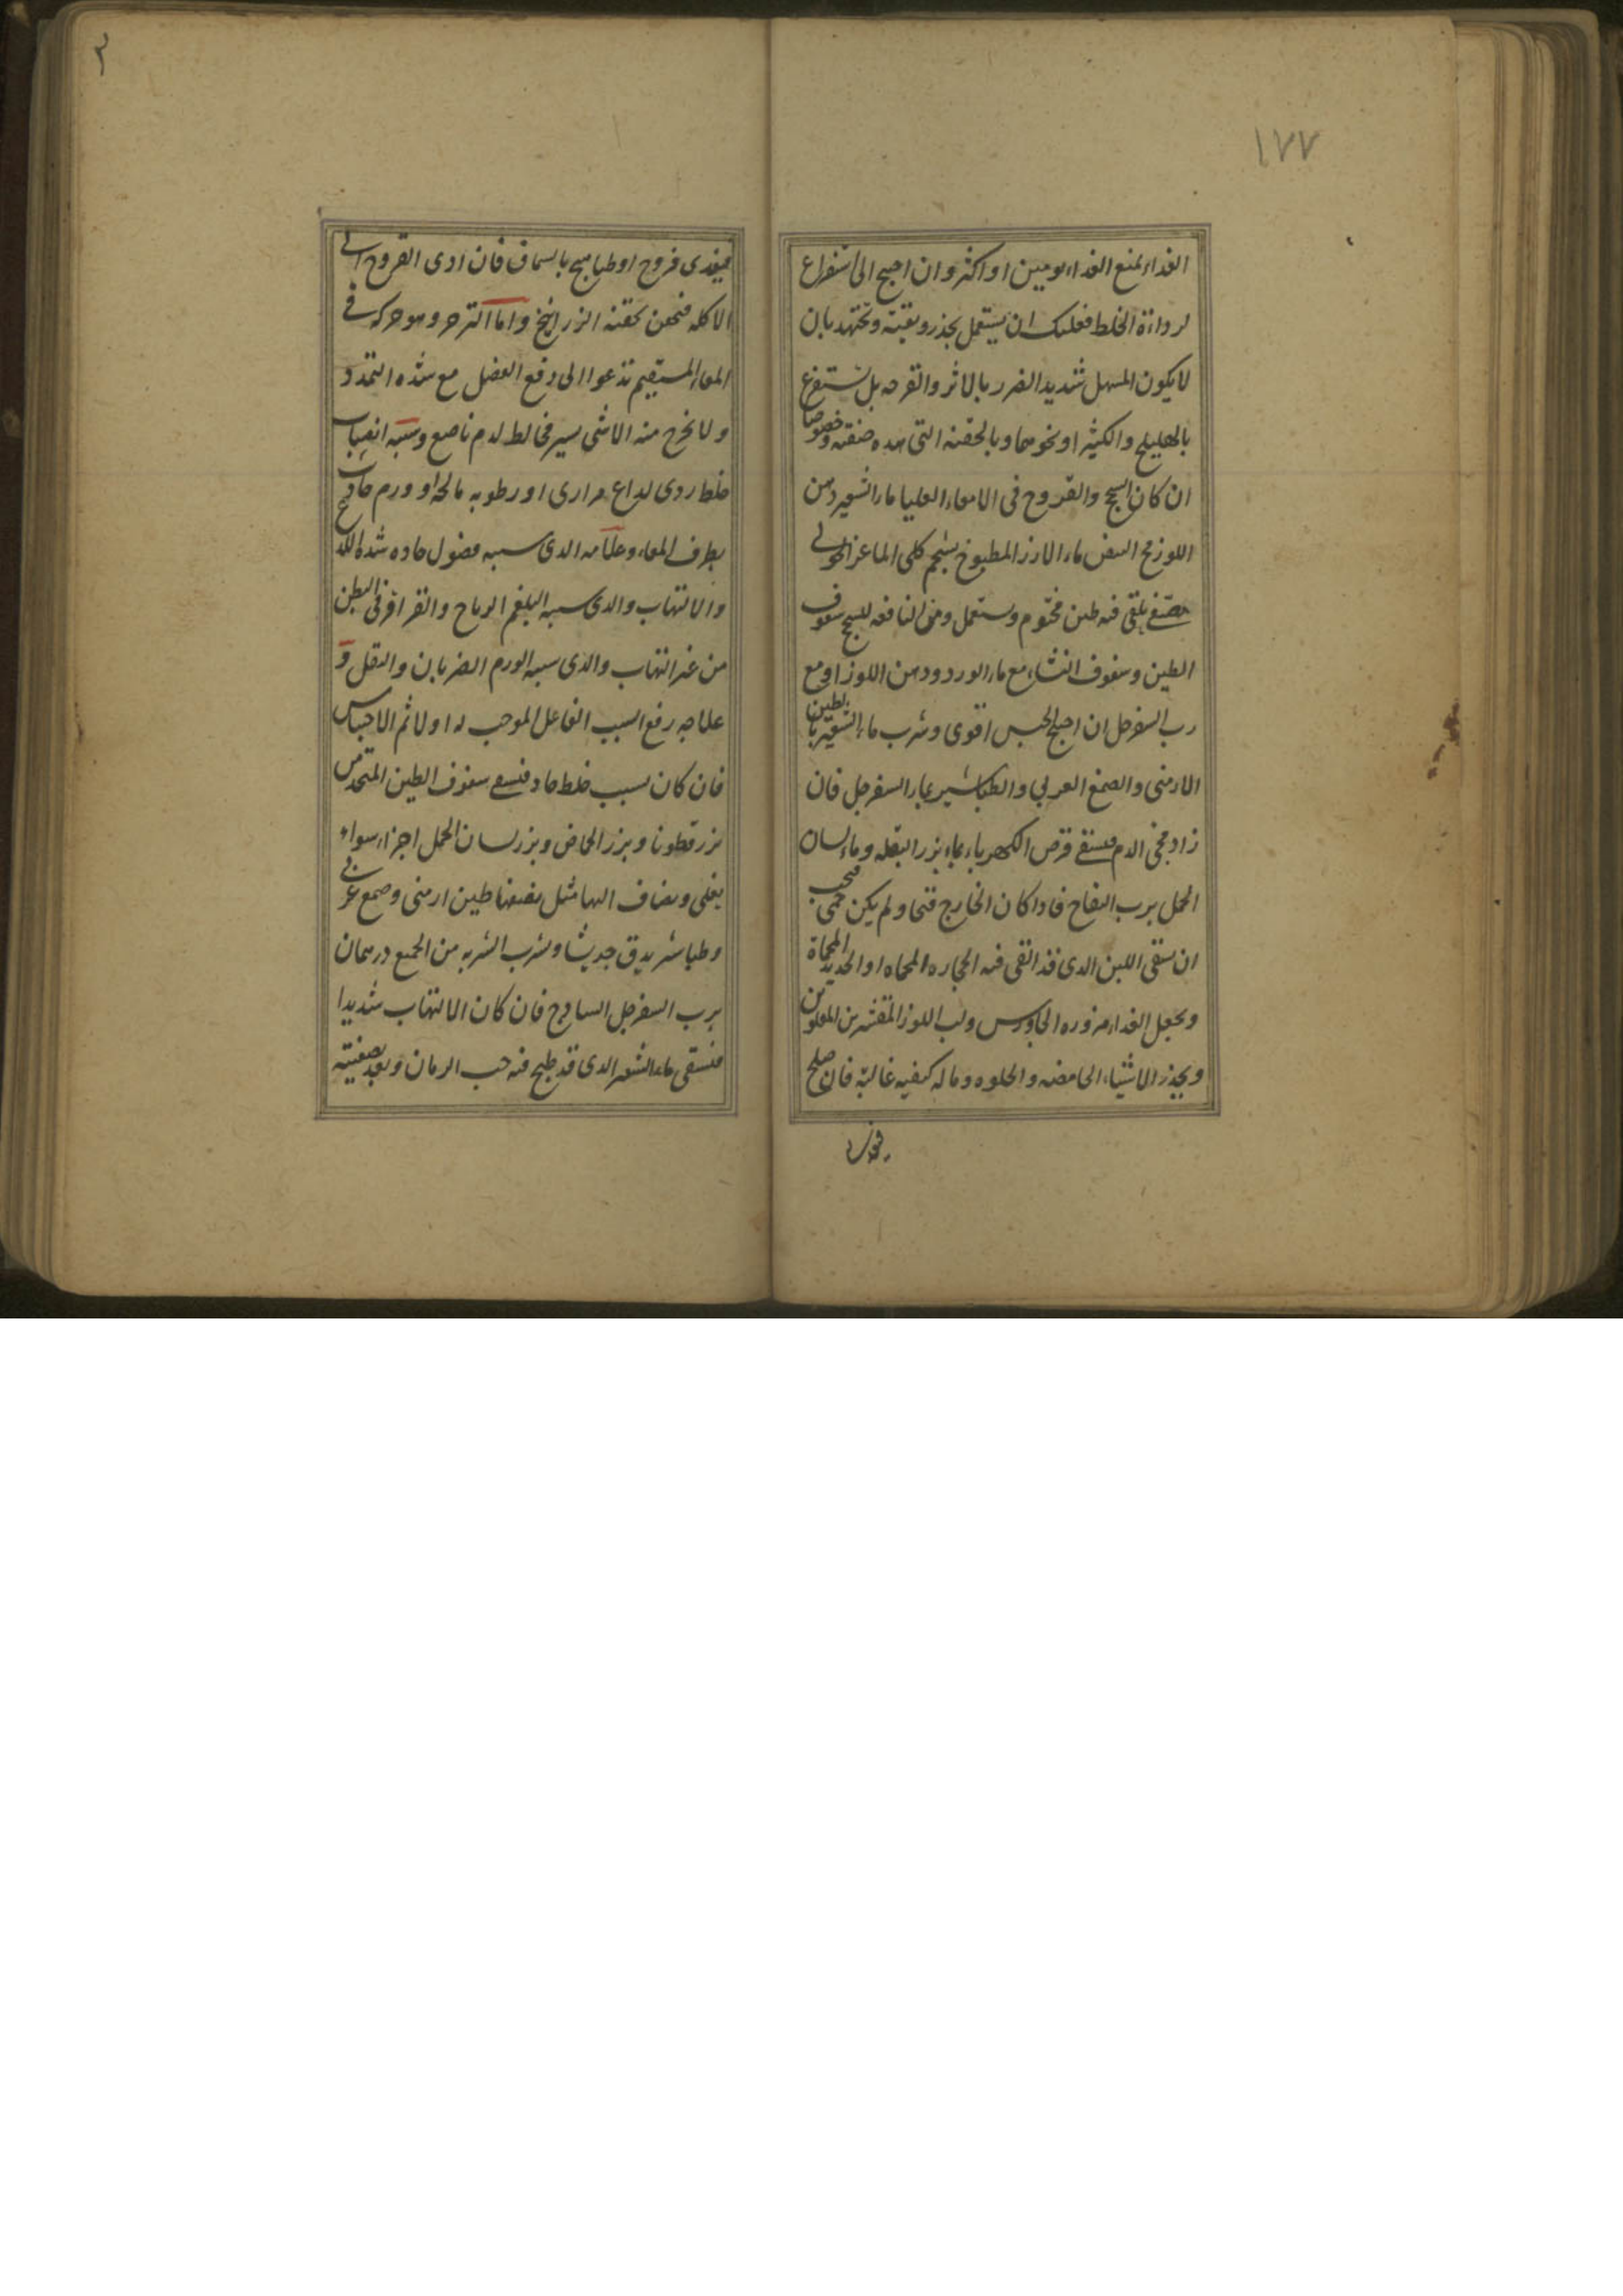 ١٧٧
الغداء بمنع الغداء يومين او اكثر وان احيج الى استفراغ
لرداءة الخلط فعليك ان يستعمل بحذر وبقية وتجتهد بان
لا يكون المسهل شديد الضرر بالاثر والقرحه بل تستفرغ
بالهليلج والكثيرا ونحوهما وبالحقنه التى هده صفته وخصوصا
ان كان السحج والقروح فى الامعاء العليا ماء الشعير ودهن
اللوز مح البيض ماء الارز المطبوخ بشحم كلى الماعز الحولى
يصفى يلقى فيه طين مختوم ويستعمل ومن النافعه للسحج سفوف
الطين وسفوف النشاء مع ماء الورد ودهن اللوز او مع
رب السفرجل ان احيج لحبس اقوى وشرب ماء الشعير بالطين
الارمنى والصمغ العربي والطباشير بماء السفرجل فان
زاد مجى الدم فيسقى قرص الكهرباء بماء بزر البقله وماء لسان
الحمل برب التفاح فادا كان الخارج قيحا ولم يكن حمى فيجب
ان يسقى اللبن الدى قد القى فيه الحجاره المحماه او الحديد المحماة
ويجعل الغداء مزوره الجاورس ولب اللوز المقشرين المقلوين
ويحذر الاشياء الحامضه والحلوه وما له كيفيه غالبة فان صلح
٣
فيغدى فروج او طياهيج بالسماق فان ادى القروح الى
الاكله فيحقن بحقنه الزرانيخ واما الترحر وهو حركه فى
المعاء المستقيم تدعوا الى دفع الفضل مع شده التمدد
ولا يخرج منه الا شى يسير مخالط لدم ناصع وسببه انصباب
خلط ردى لداع مرارى او رطوبه مالحه او ورم حادث
بطرف المعاء وعلامه الدى سببه فضول حاده شده اللدع
والالتهاب والدى سببه البلغم الرياح والقراقر فى البطن
من غير التهاب والدى سببه الورم الضربان والثقل و
علاجه رفع السبب الفاعل الموجب له اولا ثم الاحتباس
فان كان بسبب خلط حاد فيسقى سفوف الطين المتخد من
بزر قطونا وبزر الحماض وبزر لسان الحمل اجزاء سواء
يقلى ويضاف اليها مثل نصفها طين ارمنى وصمغ عربى
وطباشير يدق جريشا ويشرب الشربه من الجميع درهمان
برب السفرجل السادج فان كان الالتهاب شديدا
فيسقى ماء الشعير الدى قد طبخ فيه حب الرمان وبعد تصفيته